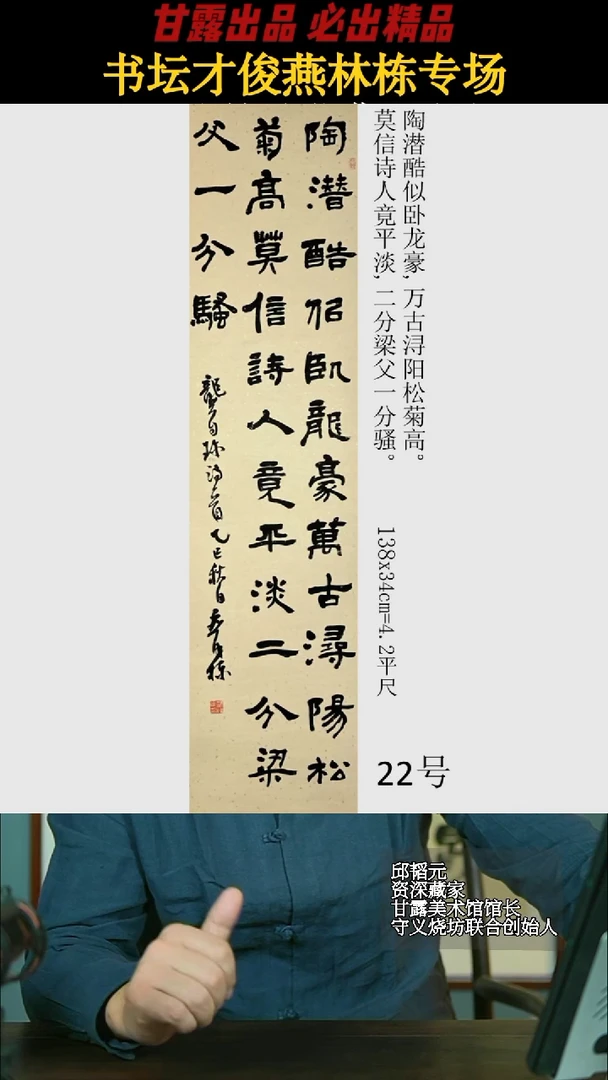 甘露出品 必出精品
书坛才俊燕林栋专场
陶潜酷似卧龙豪,万古浔阳松菊高。
莫信诗人竟平淡,二分梁父一分骚。
陶潛酷佀臥龍豪萬古潯陽松
菊高莫信詩人竟平淡二分梁
父一分騷
龔自珍詩一首 乙巳秋日
138x34cm=4.2平尺
22号
邱韬元
资深藏家
甘露美术馆馆长
守义烧坊联合创始人